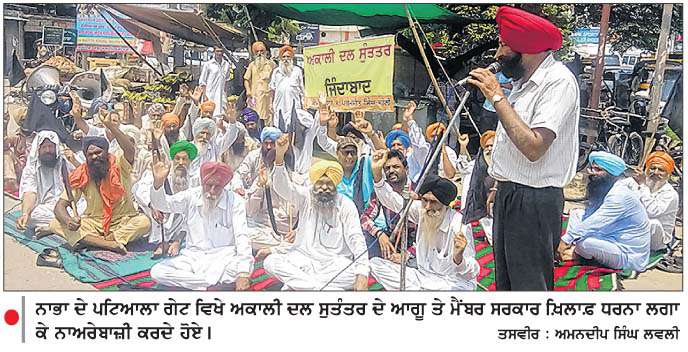 ਅਕਾਲੀ ਦਲ ਸੁਤੰਤਰ
ਜ਼ਿੰਦਾਬਾਦ
ਨਾਭਾ ਦੇ ਪਟਿਆਲਾ ਗੇਟ ਵਿਖੇ ਅਕਾਲੀ ਦਲ ਸੁਤੰਤਰ ਦੇ ਆਗੂ ਤੇ ਮੈਂਬਰ ਸਰਕਾਰ ਖ਼ਿਲਾਫ਼ ਧਰਨਾ ਲਗਾ
ਕੇ ਨਾਅਰੇਬਾਜ਼ੀ ਕਰਦੇ ਹੋਏ।
ਤਸਵੀਰ : ਅਮਨਦੀਪ ਸਿੰਘ ਲਵਲੀ